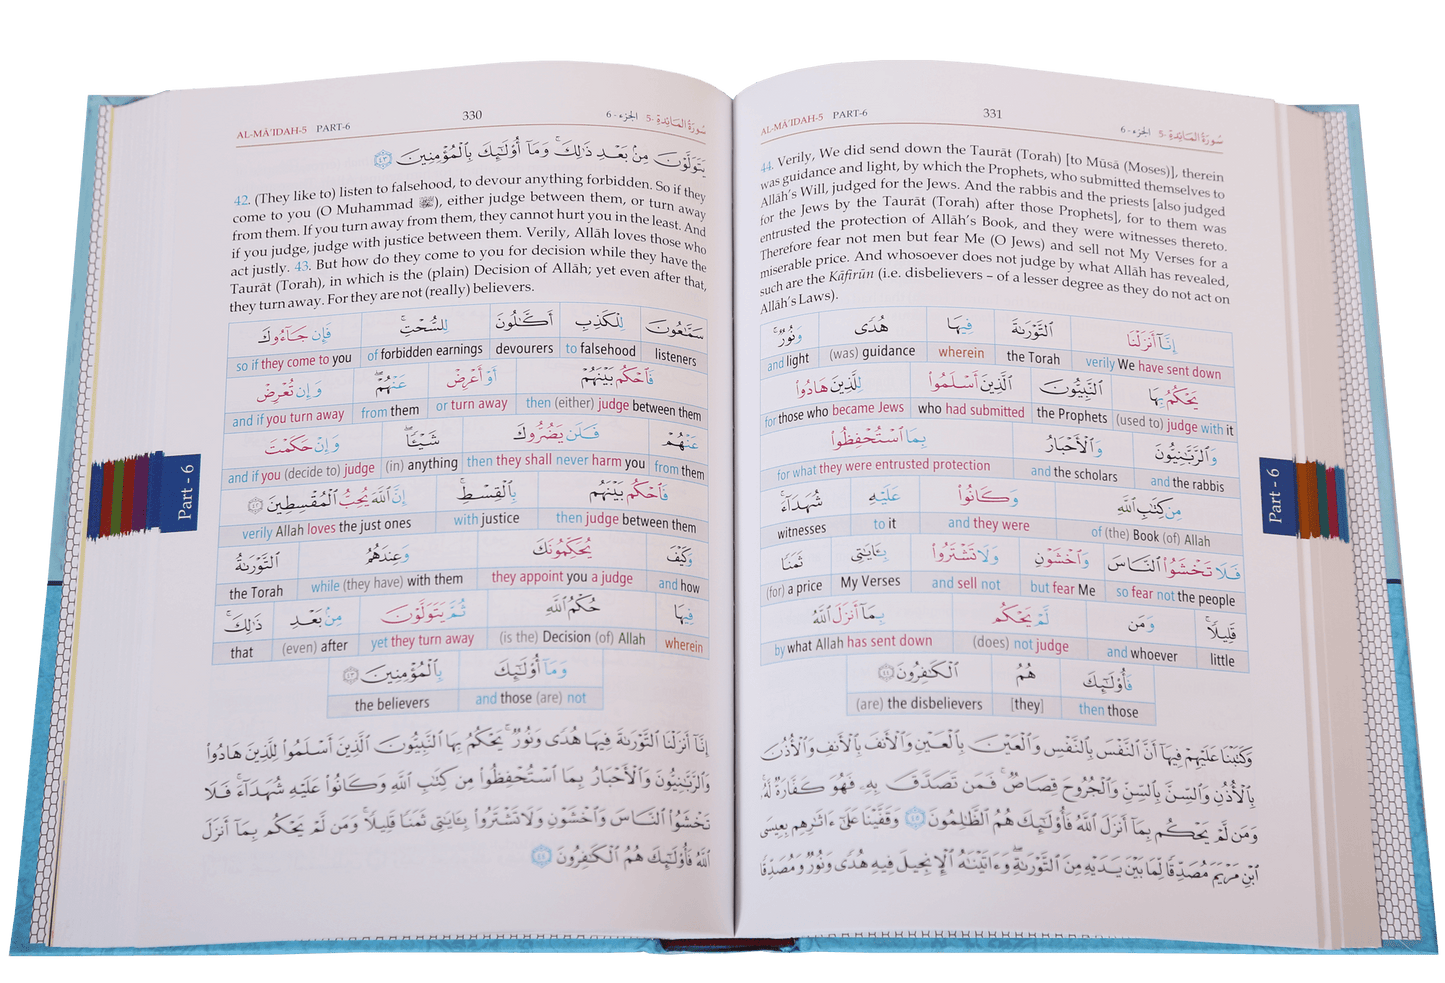 AL-MĀ'IDAH-5 PART-6 330 الجزء - 6 سُورَةُ المَائِدَةِ -5
يَتَوَلَّوْنَ مِنۢ بَعْدِ ذَٰلِكَ ۚ وَمَآ أُو۟لَـٰٓئِكَ بِٱلْمُؤْمِنِينَ ﴿٤٣﴾
42. (They like to) listen to falsehood, to devour anything forbidden. So if they
come to you (O Muhammad ﷺ), either judge between them, or turn away
from them. If you turn away from them, they cannot hurt you in the least. And
if you judge, judge with justice between them. Verily, Allāh loves those who
act justly. 43. But how do they come to you for decision while they have the
Taurāt (Torah), in which is the (plain) Decision of Allāh; yet even after that,
they turn away. For they are not (really) believers.
سَمَّـٰعُونَ لِلْكَذِبِ أَكَّـٰلُونَ لِلسُّحْتِ ۚ فَإِن جَآءُوكَ
so if they come to you of forbidden earnings devourers to falsehood listeners
فَٱحْكُم بَيْنَهُمْ أَوْ أَعْرِضْ عَنْهُمْ ۖ وَإِن تُعْرِضْ
and if you turn away from them or turn away then (either) judge between them
عَنْهُمْ فَلَن يَضُرُّوكَ شَيْـًٔا ۖ وَإِنْ حَكَمْتَ
and if you (decide to) judge (in) anything then they shall never harm you from them
فَٱحْكُم بَيْنَهُم بِٱلْقِسْطِ ۚ إِنَّ ٱللَّهَ يُحِبُّ ٱلْمُقْسِطِينَ ﴿٤٢﴾
verily Allah loves the just ones with justice then judge between them
وَكَيْفَ يُحَكِّمُونَكَ وَعِندَهُمُ ٱلتَّوْرَىٰةُ
the Torah while (they have) with them they appoint you a judge and how
فِيهَا حُكْمُ ٱللَّهِ ثُمَّ يَتَوَلَّوْنَ مِنۢ بَعْدِ ذَٰلِكَ ۚ
that (even) after yet they turn away (is the) Decision (of) Allah wherein
وَمَآ أُو۟لَـٰٓئِكَ بِٱلْمُؤْمِنِينَ ﴿٤٣﴾
the believers and those (are) not
إِنَّآ أَنزَلْنَا ٱلتَّوْرَىٰةَ فِيهَا هُدًى وَنُورٌ ۚ يَحْكُمُ بِهَا ٱلنَّبِيُّونَ ٱلَّذِينَ أَسْلَمُوا۟ لِلَّذِينَ هَادُوا۟
وَٱلرَّبَّـٰنِيُّونَ وَٱلْأَحْبَارُ بِمَا ٱسْتُحْفِظُوا۟ مِن كِتَـٰبِ ٱللَّهِ وَكَانُوا۟ عَلَيْهِ شُهَدَآءَ ۚ فَلَا
تَخْشَوُا۟ ٱلنَّاسَ وَٱخْشَوْنِ وَلَا تَشْتَرُوا۟ بِـَٔايَـٰتِى ثَمَنًا قَلِيلًا ۚ وَمَن لَّمْ يَحْكُم بِمَآ أَنزَلَ
ٱللَّهُ فَأُو۟لَـٰٓئِكَ هُمُ ٱلْكَـٰفِرُونَ ﴿٤٤﴾
Part - 6
AL-MĀ'IDAH-5 PART-6 331 الجزء - 6 سُورَةُ المَائِدَةِ -5
44. Verily, We did send down the Taurāt (Torah) [to Mūsā (Moses)], therein
was guidance and light, by which the Prophets, who submitted themselves to
Allāh's Will, judged for the Jews. And the rabbis and the priests [also judged
for the Jews by the Taurāt (Torah) after those Prophets], for to them was
entrusted the protection of Allāh's Book, and they were witnesses thereto.
Therefore fear not men but fear Me (O Jews) and sell not My Verses for a
miserable price. And whosoever does not judge by what Allāh has revealed,
such are the Kāfirūn (i.e. disbelievers – of a lesser degree as they do not act on
Allāh's Laws).
إِنَّآ أَنزَلْنَا ٱلتَّوْرَىٰةَ فِيهَا هُدًى وَنُورٌ ۚ
and light (was) guidance wherein the Torah verily We have sent down
يَحْكُمُ بِهَا ٱلنَّبِيُّونَ ٱلَّذِينَ أَسْلَمُوا۟ لِلَّذِينَ هَادُوا۟
for those who became Jews who had submitted the Prophets (used to) judge with it
وَٱلرَّبَّـٰنِيُّونَ وَٱلْأَحْبَارُ بِمَا ٱسْتُحْفِظُوا۟
for what they were entrusted protection and the scholars and the rabbis
مِن كِتَـٰبِ ٱللَّهِ وَكَانُوا۟ عَلَيْهِ شُهَدَآءَ ۚ
witnesses to it and they were of (the) Book (of) Allah
فَلَا تَخْشَوُا۟ ٱلنَّاسَ وَٱخْشَوْنِ وَلَا تَشْتَرُوا۟ بِـَٔايَـٰتِى ثَمَنًا
(for) a price My Verses and sell not but fear Me so fear not the people
قَلِيلًا ۚ وَمَن لَّمْ يَحْكُم بِمَآ أَنزَلَ ٱللَّهُ
by what Allah has sent down (does) not judge and whoever little
فَأُو۟لَـٰٓئِكَ هُمُ ٱلْكَـٰفِرُونَ ﴿٤٤﴾
(are) the disbelievers [they] then those
وَكَتَبْنَا عَلَيْهِمْ فِيهَآ أَنَّ ٱلنَّفْسَ بِٱلنَّفْسِ وَٱلْعَيْنَ بِٱلْعَيْنِ وَٱلْأَنفَ بِٱلْأَنفِ وَٱلْأُذُنَ
بِٱلْأُذُنِ وَٱلسِّنَّ بِٱلسِّنِّ وَٱلْجُرُوحَ قِصَاصٌ ۚ فَمَن تَصَدَّقَ بِهِۦ فَهُوَ كَفَّارَةٌ لَّهُۥ ۚ
وَمَن لَّمْ يَحْكُم بِمَآ أَنزَلَ ٱللَّهُ فَأُو۟لَـٰٓئِكَ هُمُ ٱلظَّـٰلِمُونَ ﴿٤٥﴾ وَقَفَّيْنَا عَلَىٰٓ ءَاثَـٰرِهِم بِعِيسَى
ٱبْنِ مَرْيَمَ مُصَدِّقًا لِّمَا بَيْنَ يَدَيْهِ مِنَ ٱلتَّوْرَىٰةِ ۖ وَءَاتَيْنَـٰهُ ٱلْإِنجِيلَ فِيهِ هُدًى وَنُورٌ وَمُصَدِّقًا
Part - 6